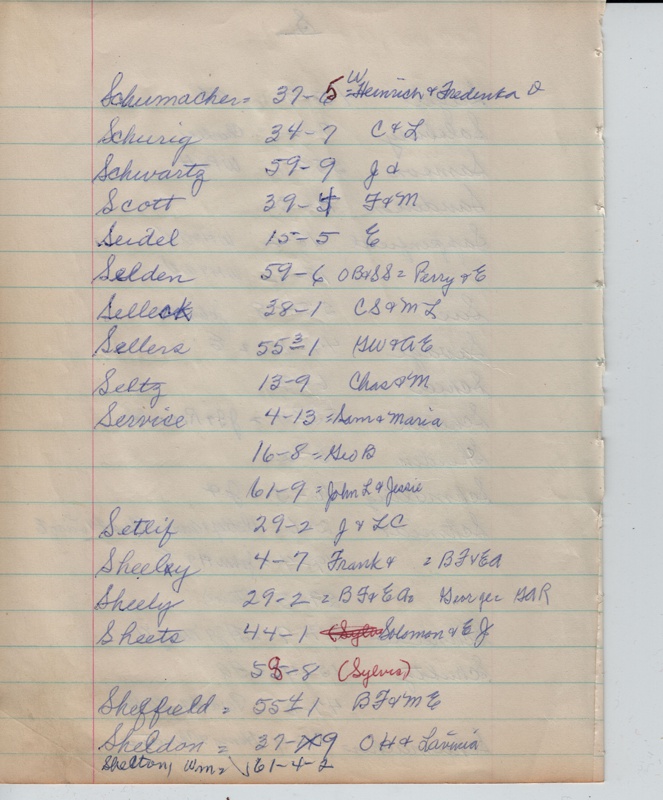 Schumacher = 37-5 = W Heinrich & Fredericka O
Schurig 34-7 C & L
Schwartz 59-9 J &
Scott 39-4 F & M
Seidel 15-5 E
Selden 59-6 OB & SS = Perry & E
Selleck 38-1 CS & ML
Sellers 55 3-1 GW & AE
Seltz 13-9 Chas & M
Service 4-13 = Sam & Maria
16-8 = Geo B
61-9 = John L & Jessie
Setlif 29-2 J & LC
Sheeley 4-7 Frank & = BF & EA
Sheely 29-2 = BF & EA = George GAR
Sheets 44-1 Solomon & E J
58-8 (Sylvis)
Sheffield = 55 4-1 BF & ME
Sheldon = 37-9 OH & Lavinia
Shelton, Wm = 61-4-2